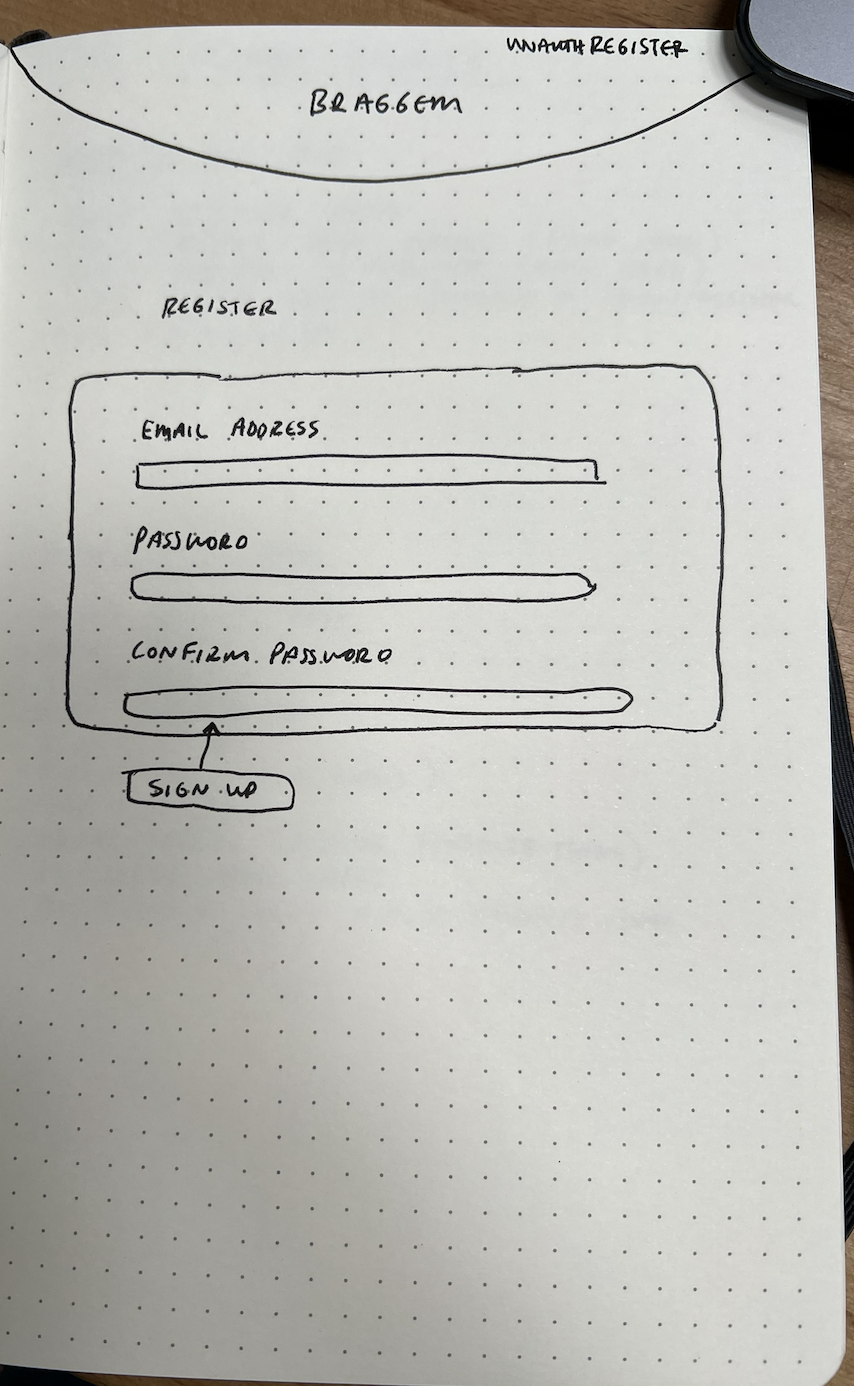 UNAUTH REGISTER
BRAGGEM
REGISTER
EMAIL ADDRESS
PASSWORD
CONFIRM PASSWORD
SIGN UP